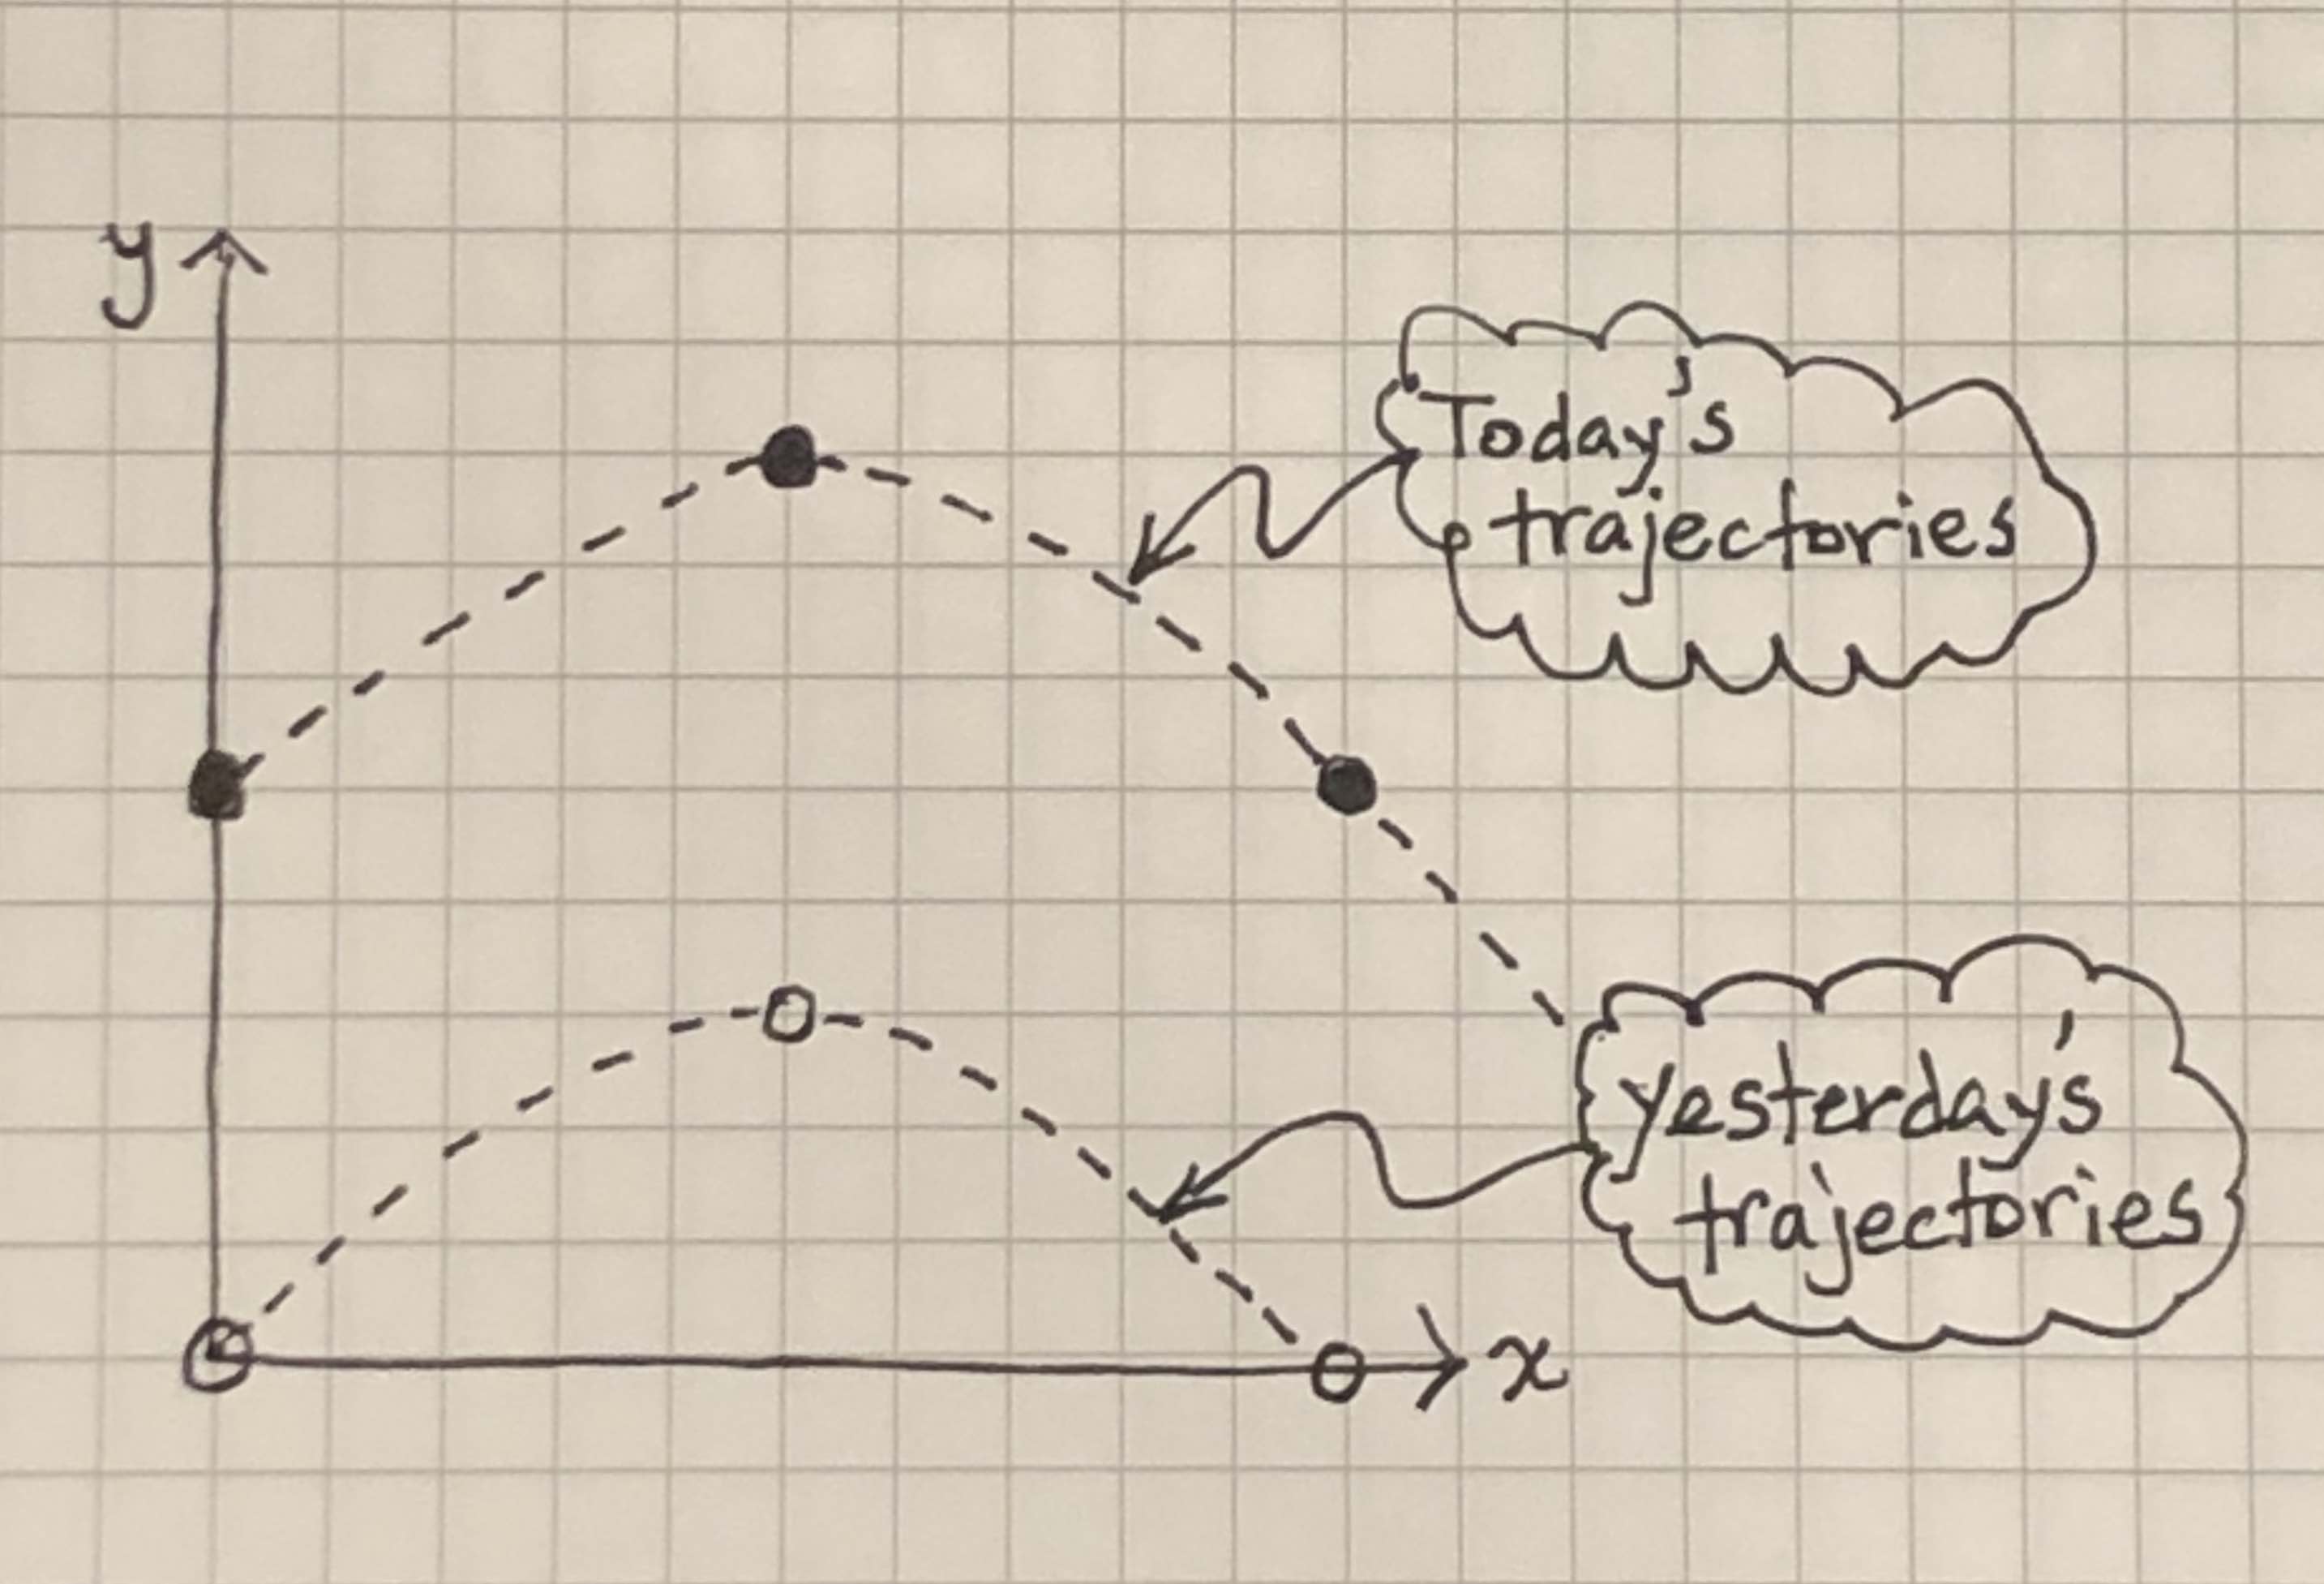 y
Today's
trajectories
yesterday's
trajectories
x